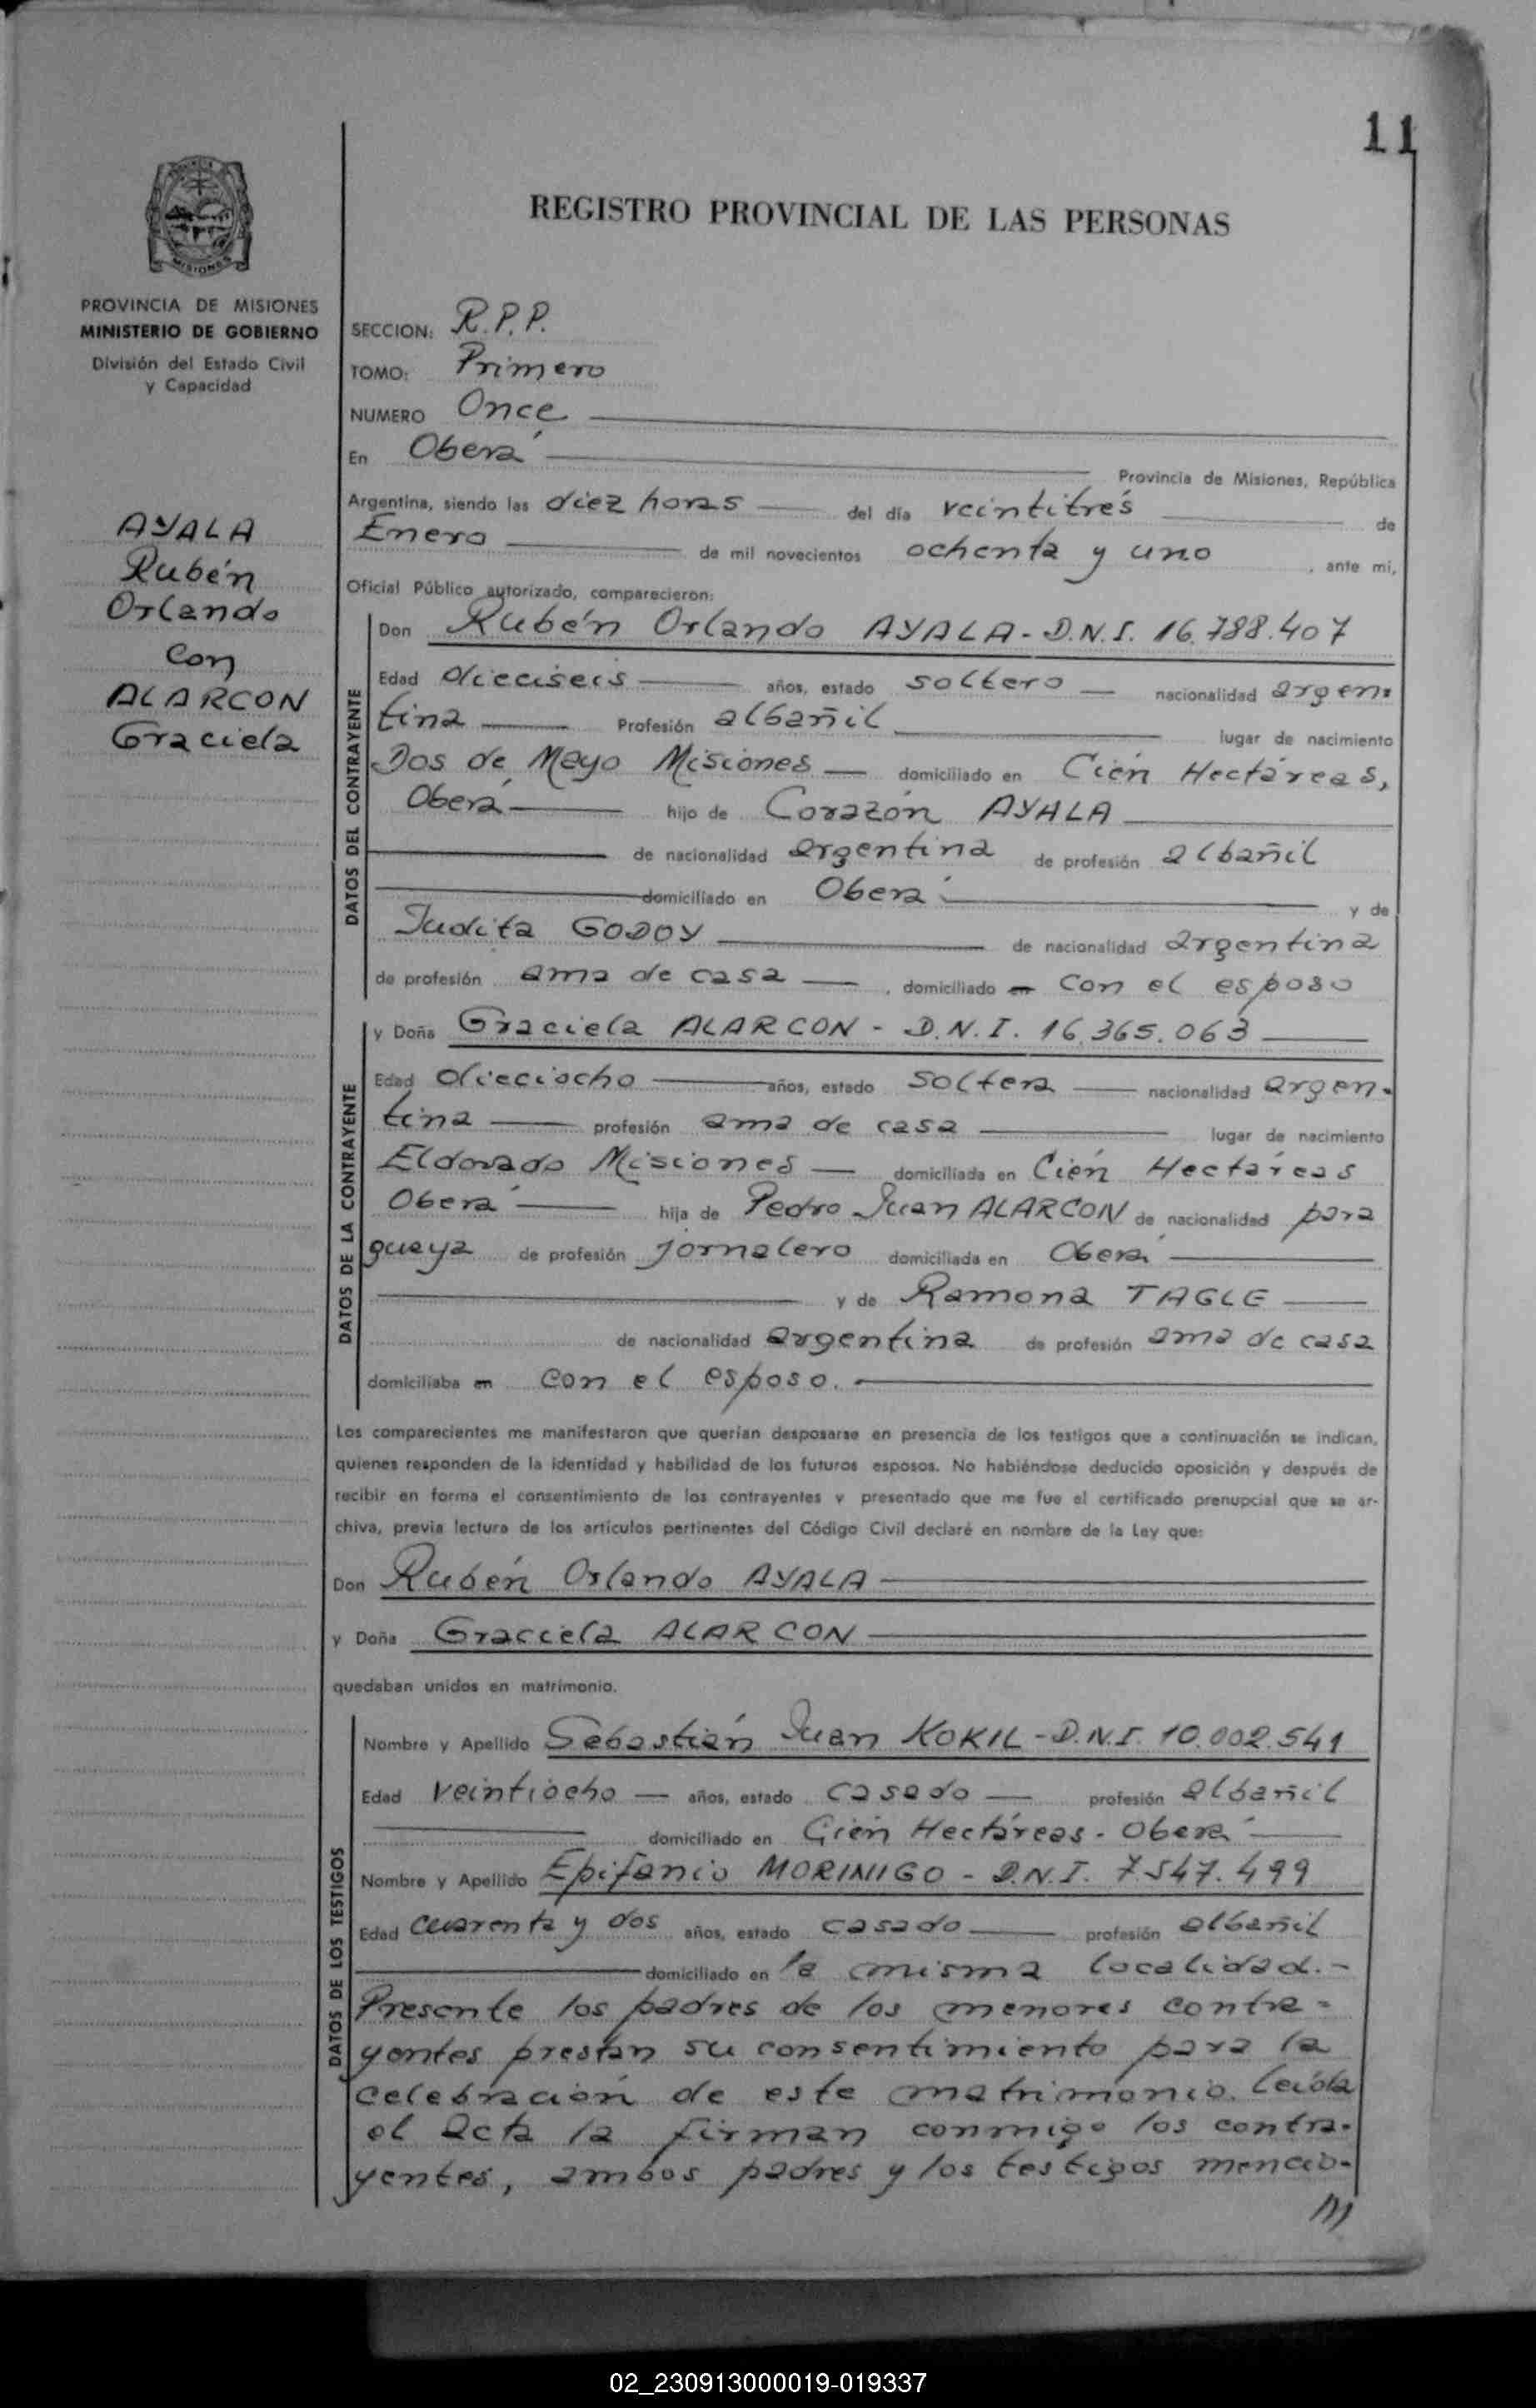 11
REGISTRO PROVINCIAL DE LAS PERSONAS
MISIONES
PROVINCIA DE MISIONES
MINISTERIO DE GOBIERNO
División del Estado Civil
y Capacidad
AYALA
Rubén
Orlando
con
ALARCON
Graciela
SECCION: R.P.P.
TOMO: Primero
NUMERO Once
En Oberá
Provincia de Misiones, República
Argentina, siendo las diez horas del día veintitrés de
Enero de mil novecientos ochenta y uno , ante mi,
Oficial Público autorizado, comparecieron:
DATOS DEL CONTRAYENTE
Don Rubén Orlando AYALA - D.N.I. 16.788.407
Edad dieciseis años, estado soltero nacionalidad argen-
tina Profesión albañil lugar de nacimiento
Dos de Mayo Misiones domiciliado en Cién Hectáreas,
Oberá hijo de Corazón AYALA
de nacionalidad argentina de profesión albañil
domiciliado en Oberá y de
Judita GODOY de nacionalidad argentina
de profesión ama de casa , domiciliado en con el esposo
DATOS DE LA CONTRAYENTE
y Doña Graciela ALARCON - D.N.I. 16.365.063
Edad dieciocho años, estado soltera nacionalidad argen-
tina profesión ama de casa lugar de nacimiento
Eldorado Misiones domiciliada en Cién Hectáreas
Oberá hija de Pedro Juan ALARCON de nacionalidad para
guaya de profesión jornalero domiciliada en Oberá
y de Ramona TAGLE
de nacionalidad argentina de profesión ama de casa
domiciliaba en con el esposo.
Los comparecientes me manifestaron que querían desposarse en presencia de los testigos que a continuación se indican,
quienes responden de la identidad y habilidad de los futuros esposos. No habiéndose deducido oposición y después de
recibir en forma el consentimiento de los contrayentes y presentado que me fue el certificado prenupcial que se ar-
chiva, previa lectura de los artículos pertinentes del Código Civil declaré en nombre de la Ley que:
Don Rubén Orlando AYALA
y Doña Graciela ALARCON
quedaban unidos en matrimonio.
DATOS DE LOS TESTIGOS
Nombre y Apellido Sebastián Juan KOKIL - D.N.I. 10.002.541
Edad veintiocho años, estado casado profesión albañil
domiciliado en Cién Hectáreas - Oberá
Nombre y Apellido Epifanio MORINIGO - D.N.I. 7.547.499
Edad cuarenta y dos años, estado casado profesión albañil
domiciliado en la misma localidad.-
Presente los padres de los menores contra-
yentes prestan su consentimiento para la
celebración de este matrimonio. Leída
el acta la firman conmigo los contra-
yentes, ambos padres y los testigos mencio-
///
02_230913000019-019337